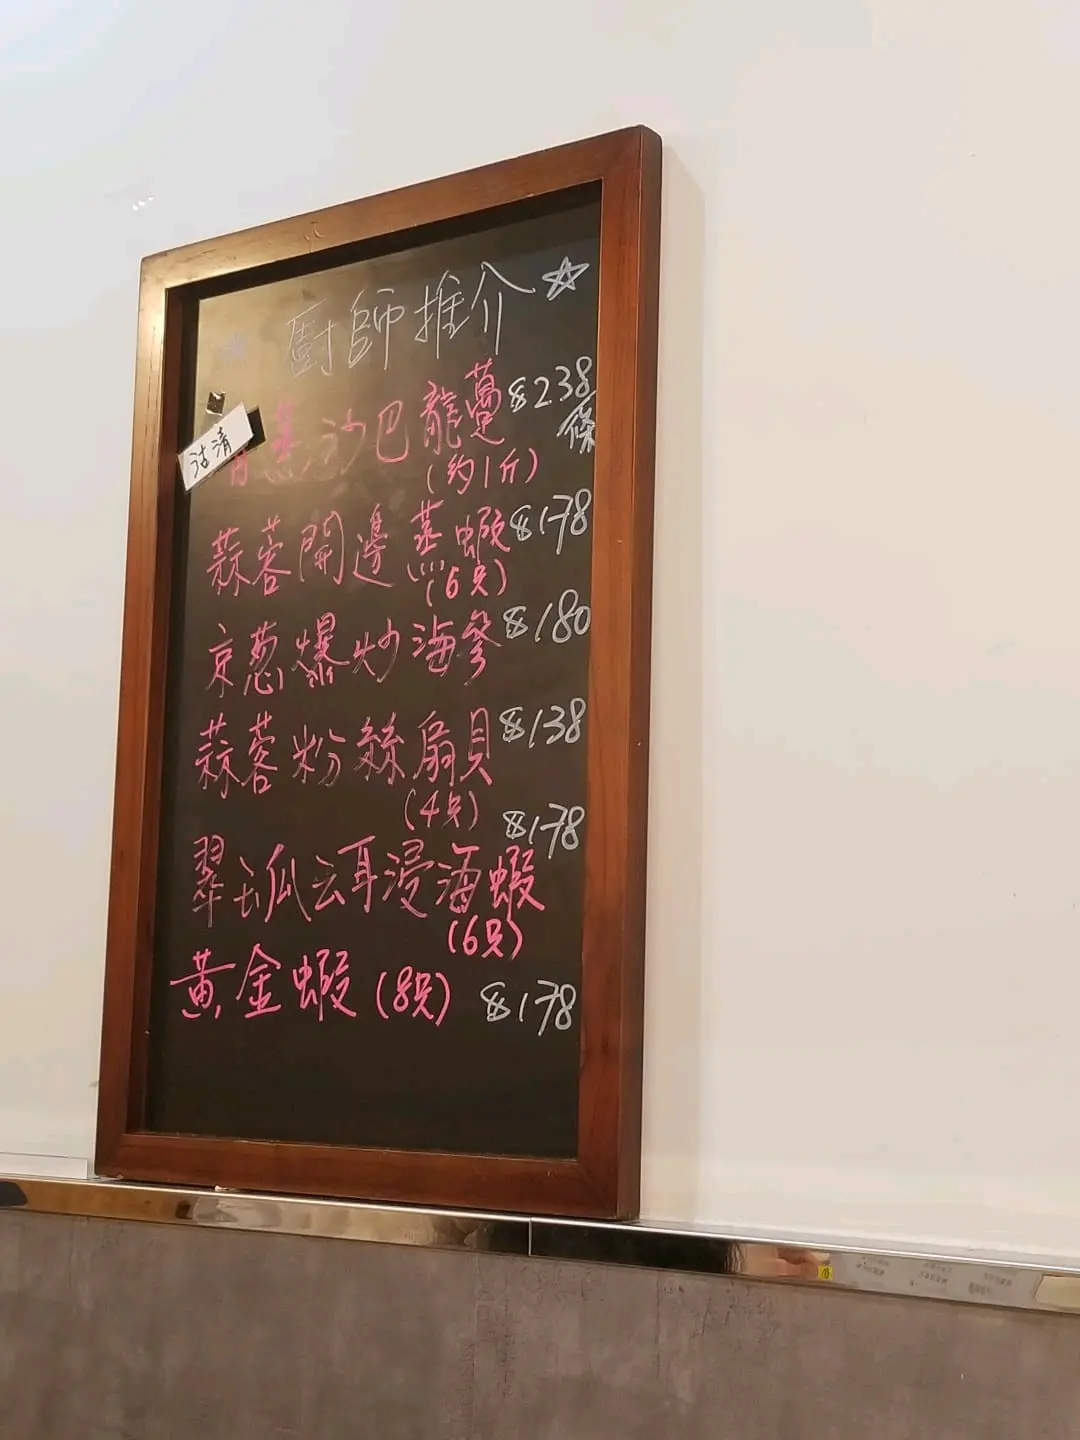 廚師推介
沽清
清蒸沙巴龍躉 $238
條
(約1斤)
蒜蓉開邊蒸蝦 $178
(6只)
京蔥爆炒海參 $180
蒜蓉粉絲扇貝 $138
(4只)
$178
翠玉瓜云耳浸海蝦
(6只)
黃金蝦(8只) $178